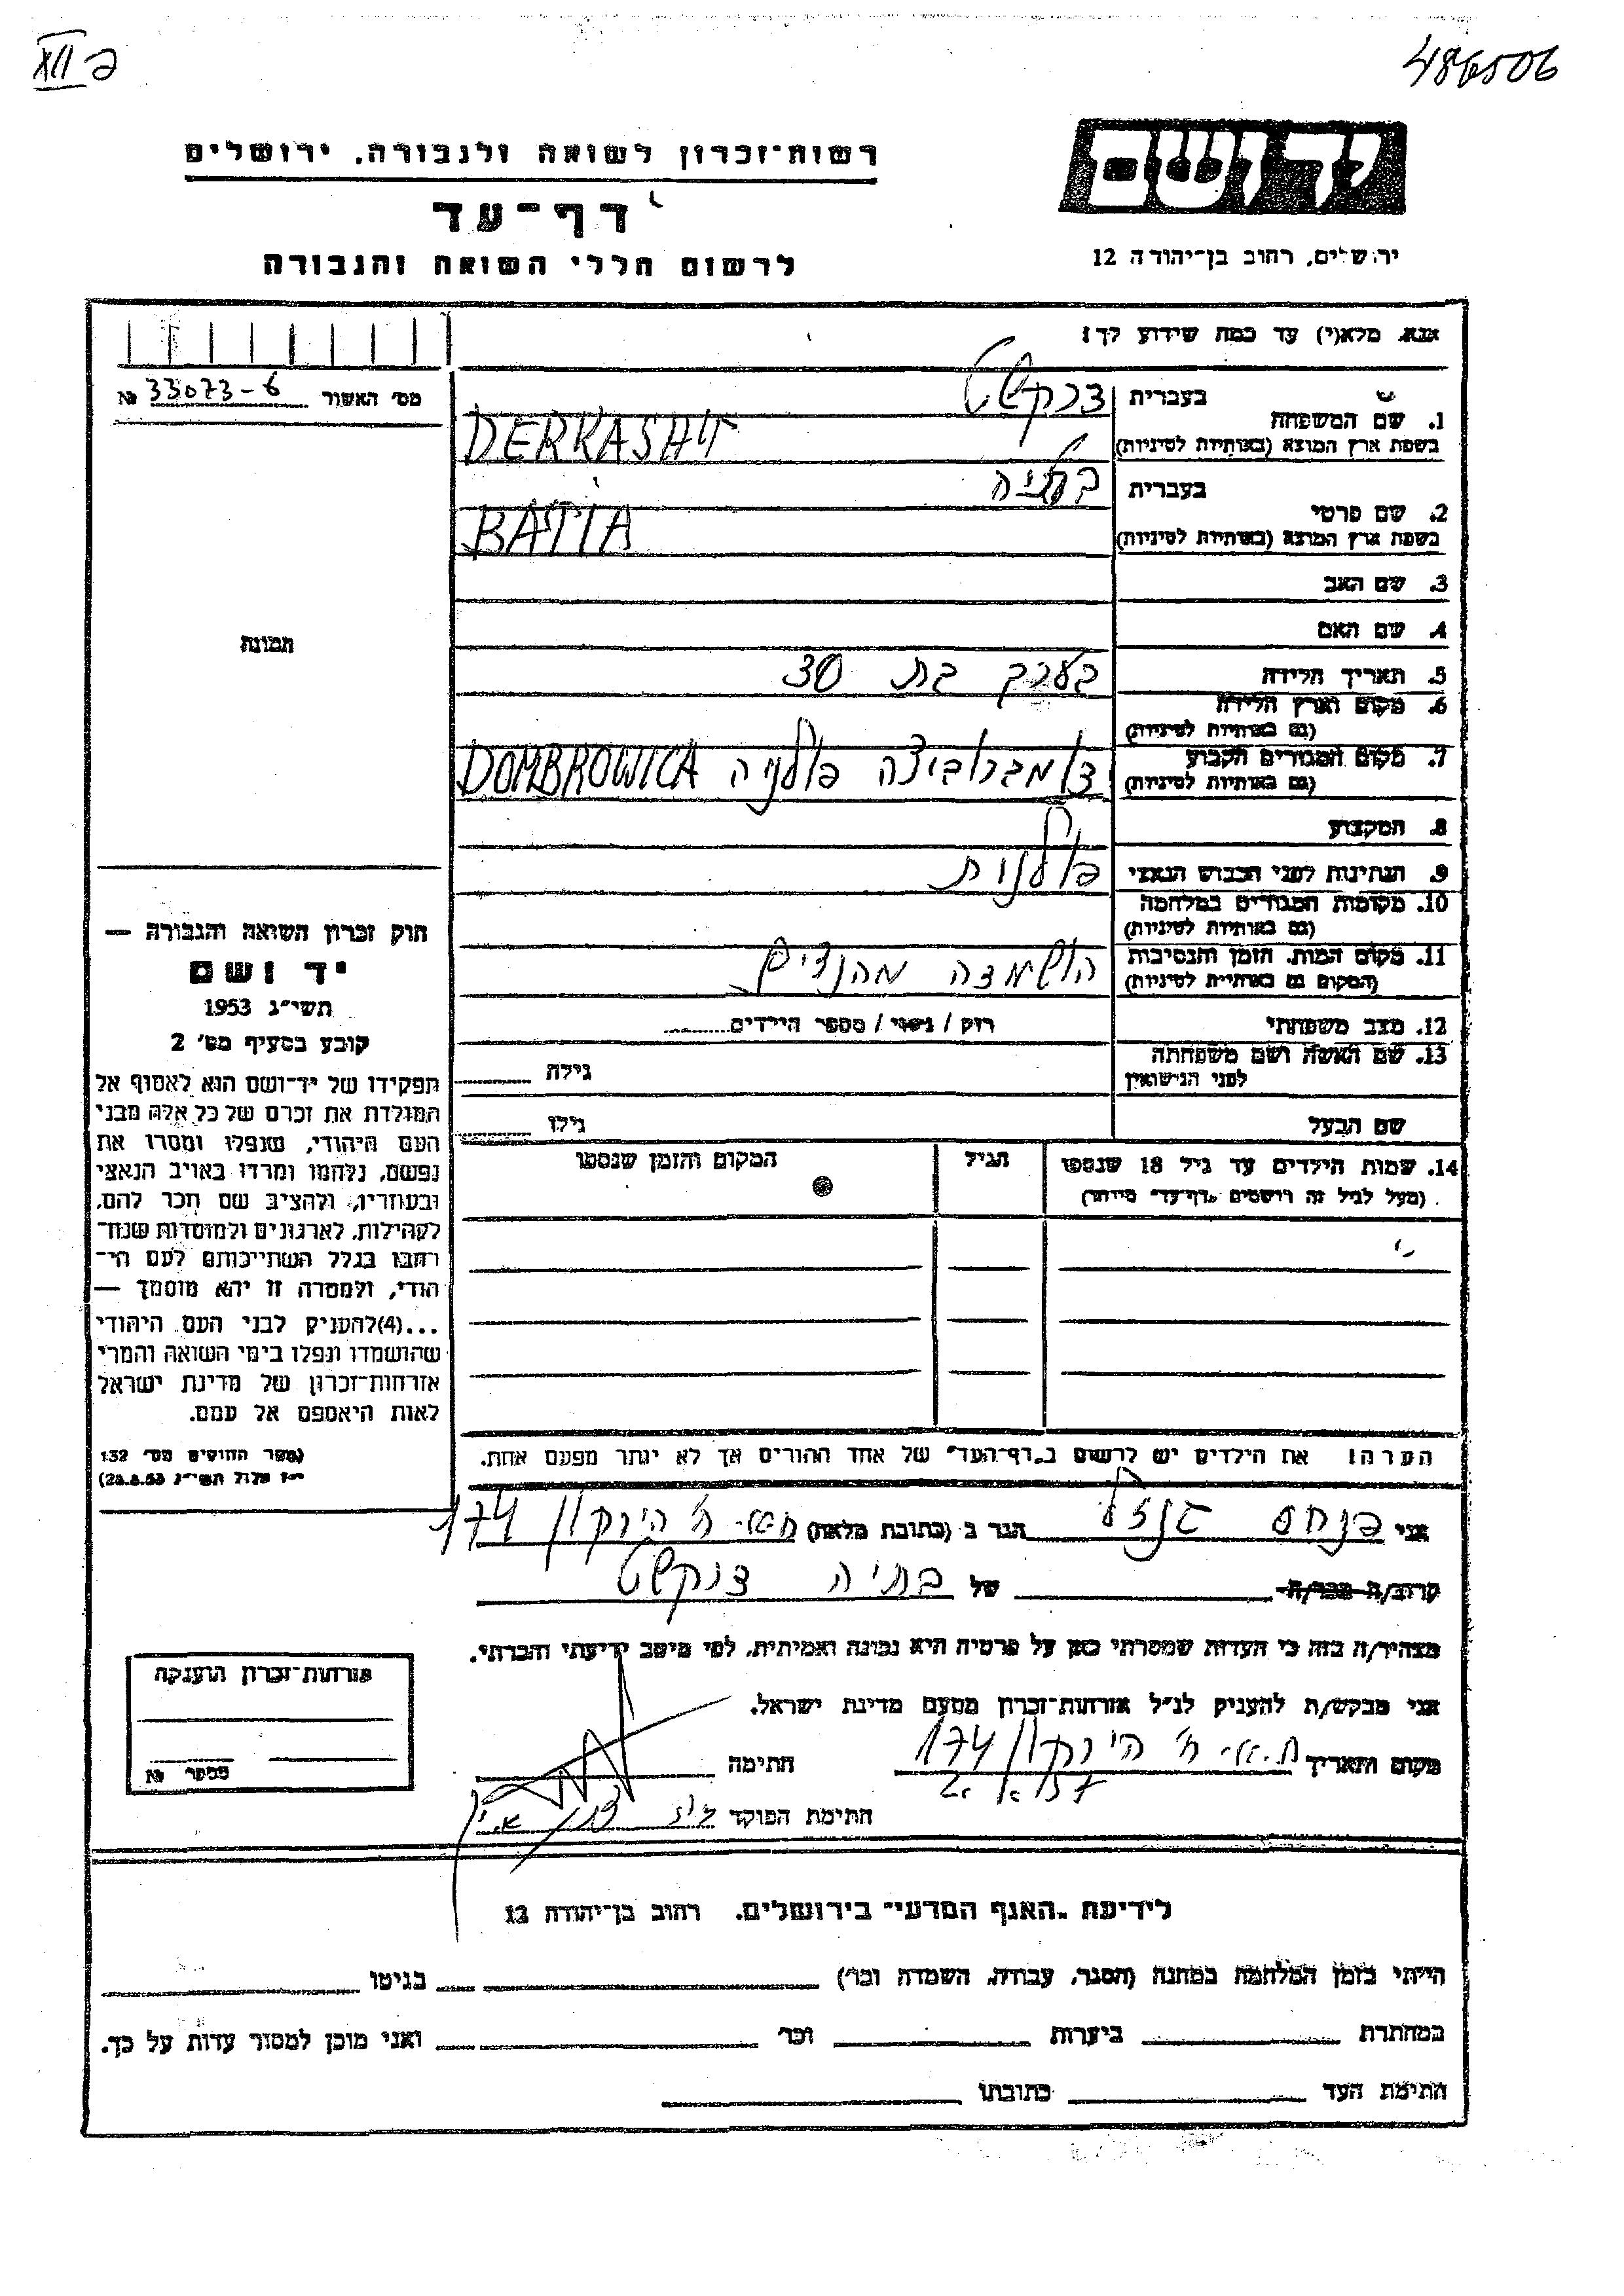 486506
XII כ
יד ושם
רשות־זכרון לשואה ולגבורה, ירושלים
דף־עד
לרשום חללי השואה והגבורה
ירושלים, רחוב בן־יהודה 12
אנא, מלא(י) עד כמה שידוע לך!
מס׳ האשור 33073-6 №
1. שם המשפחה
בעברית דרקשט
בשפת ארץ המוצא (באותיות לטיניות) DERKASHT
2. שם פרטי
בעברית בתיה
בשפת ארץ המוצא (באותיות לטיניות) BATIA
3. שם האב
4. שם האם
5. תאריך הלידה בערך בת 30
6. מקום וארץ הלידה
(גם באותיות לטיניות)
7. מקום המגורים הקבוע דומברוביצה פולניה DOMBROWICA
(גם באותיות לטיניות)
8. המקצוע
9. הנתינות לפני הכבוש הנאצי פולנית
10. מקומות המגורים במלחמה
(גם באותיות לטיניות)
11. מקום המות, הזמן והנסיבות
(המקום גם באותיות לטיניות) הושמדה
12. מצב משפחתי רוק / נשוי / מספר הילדים
13. שם האשה ושם משפחתה
לפני הנישואין גילה
שם הבעל גילו
14. שמות הילדים עד גיל 18 שנספו הגיל המקום והזמן שנספו
(מעל לגיל זה רושמים „דף־עד״ מיוחד)
תמונה
חוק זכרון השואה והגבורה —
יד ושם
תשי״ג 1953
קובע בסעיף מס׳ 2
תפקידו של יד־ושם הוא לאסוף אל
המולדת את זכרם של כל אלה מבני
העם היהודי, שנפלו ומסרו את
נפשם, נלחמו ומרדו באויב הנאצי
ובעוזריו, ולהציב שם וזכר להם,
לקהילות, לארגונים ולמוסדות שנח־
רבו בגלל השתייכותם לעם הי־
הודי, ולמטרה זו יהא מוסמך —
...(4)להעניק לבני העם היהודי
שהושמדו ונפלו בימי השואה והמרי
אזרחות־זכרון של מדינת ישראל
לאות היאספם אל עמם.
(ספר החוקים מס׳ 132
י״ז אלול תשי״ג 28.8.53)
הערה! את הילדים יש לרשום ב„דף־העד״ של אחד ההורים אך לא יותר מפעם אחת.
אני פנחס הגר ב (כתובת מלאה) ת״א- ח׳ הירקון 174
קרוב/ה מכר/ה של בתיה דרקשט
מצהיר/ה בזה כי העדות שמסרתי כאן על פרטיה היא נכונה ואמיתית, לפי מיטב ידיעתי והכרתי.
אני מבקש/ת להעניק לנ״ל אזרחות־זכרון מטעם מדינת ישראל.
מקום ותאריך ת.א.- ח׳ הירקון 174 חתימה
חתימת הפוקד
אזרחות־זכרון הוענקה
מספר №
לידיעת „האגף המדעי״ בירושלים, רחוב בן־יהודה 12
הייתי בזמן המלחמה במחנה (הסגר, עבודה, השמדה וכו׳) בגיטו
במחתרת ביערות וכו׳ ואני מוכן למסור עדות על כך.
חתימת העד כתובתו